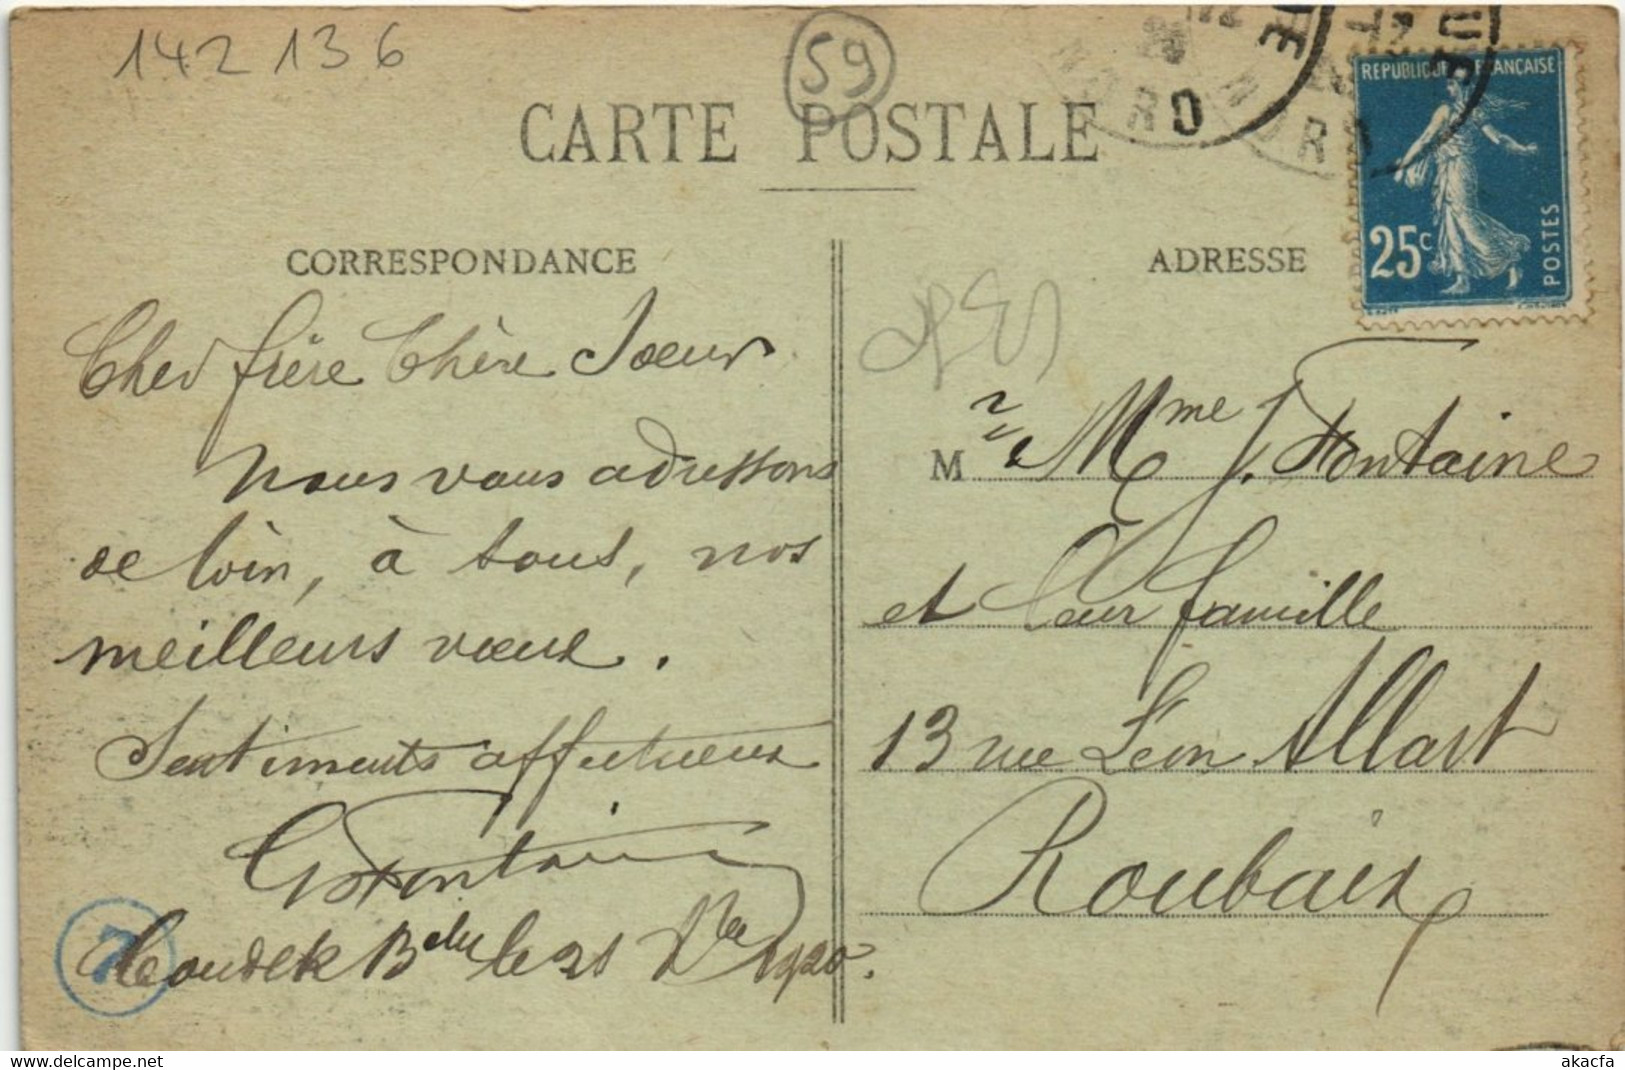 142 136
59
CARTE POSTALE
NORD
NORD
REPUBLIQUE FRANÇAISE
25c
POSTES
CORRESPONDANCE
ADRESSE
Cher frère Chère Soeur
Nous vous adressons
de loin, à tous, nos
meilleurs vœux.
Sentiments affectueux
G Fontaine
le 21 1920.
7
M r & Mme J. Fontaine
et leur famille
13 rue Léon Allart
Roubaix
delcampe.net
akacfa